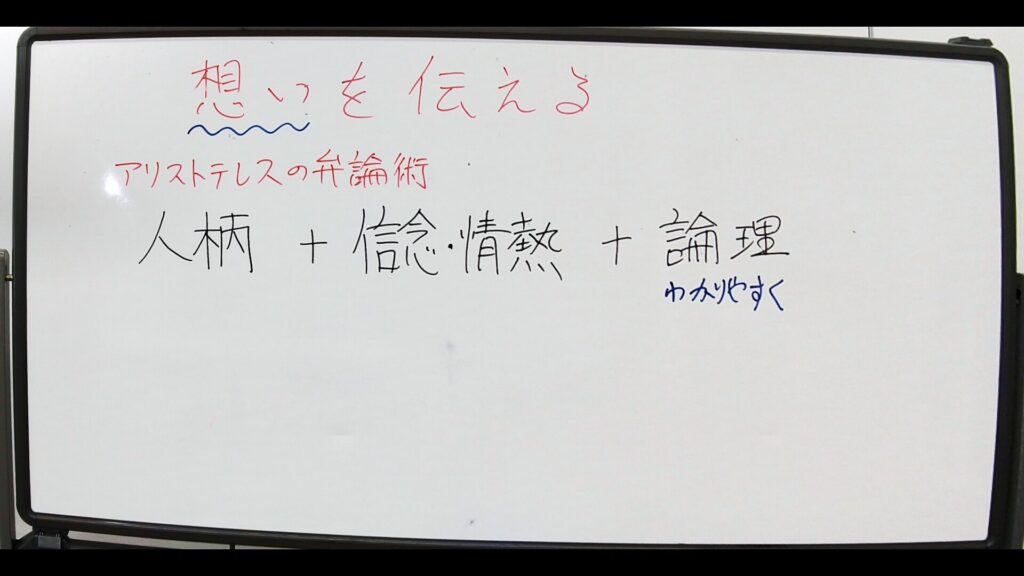 想いを伝える
アリストテレスの弁論術
人柄 + 信念・情熱 + 論理
わかりやすく